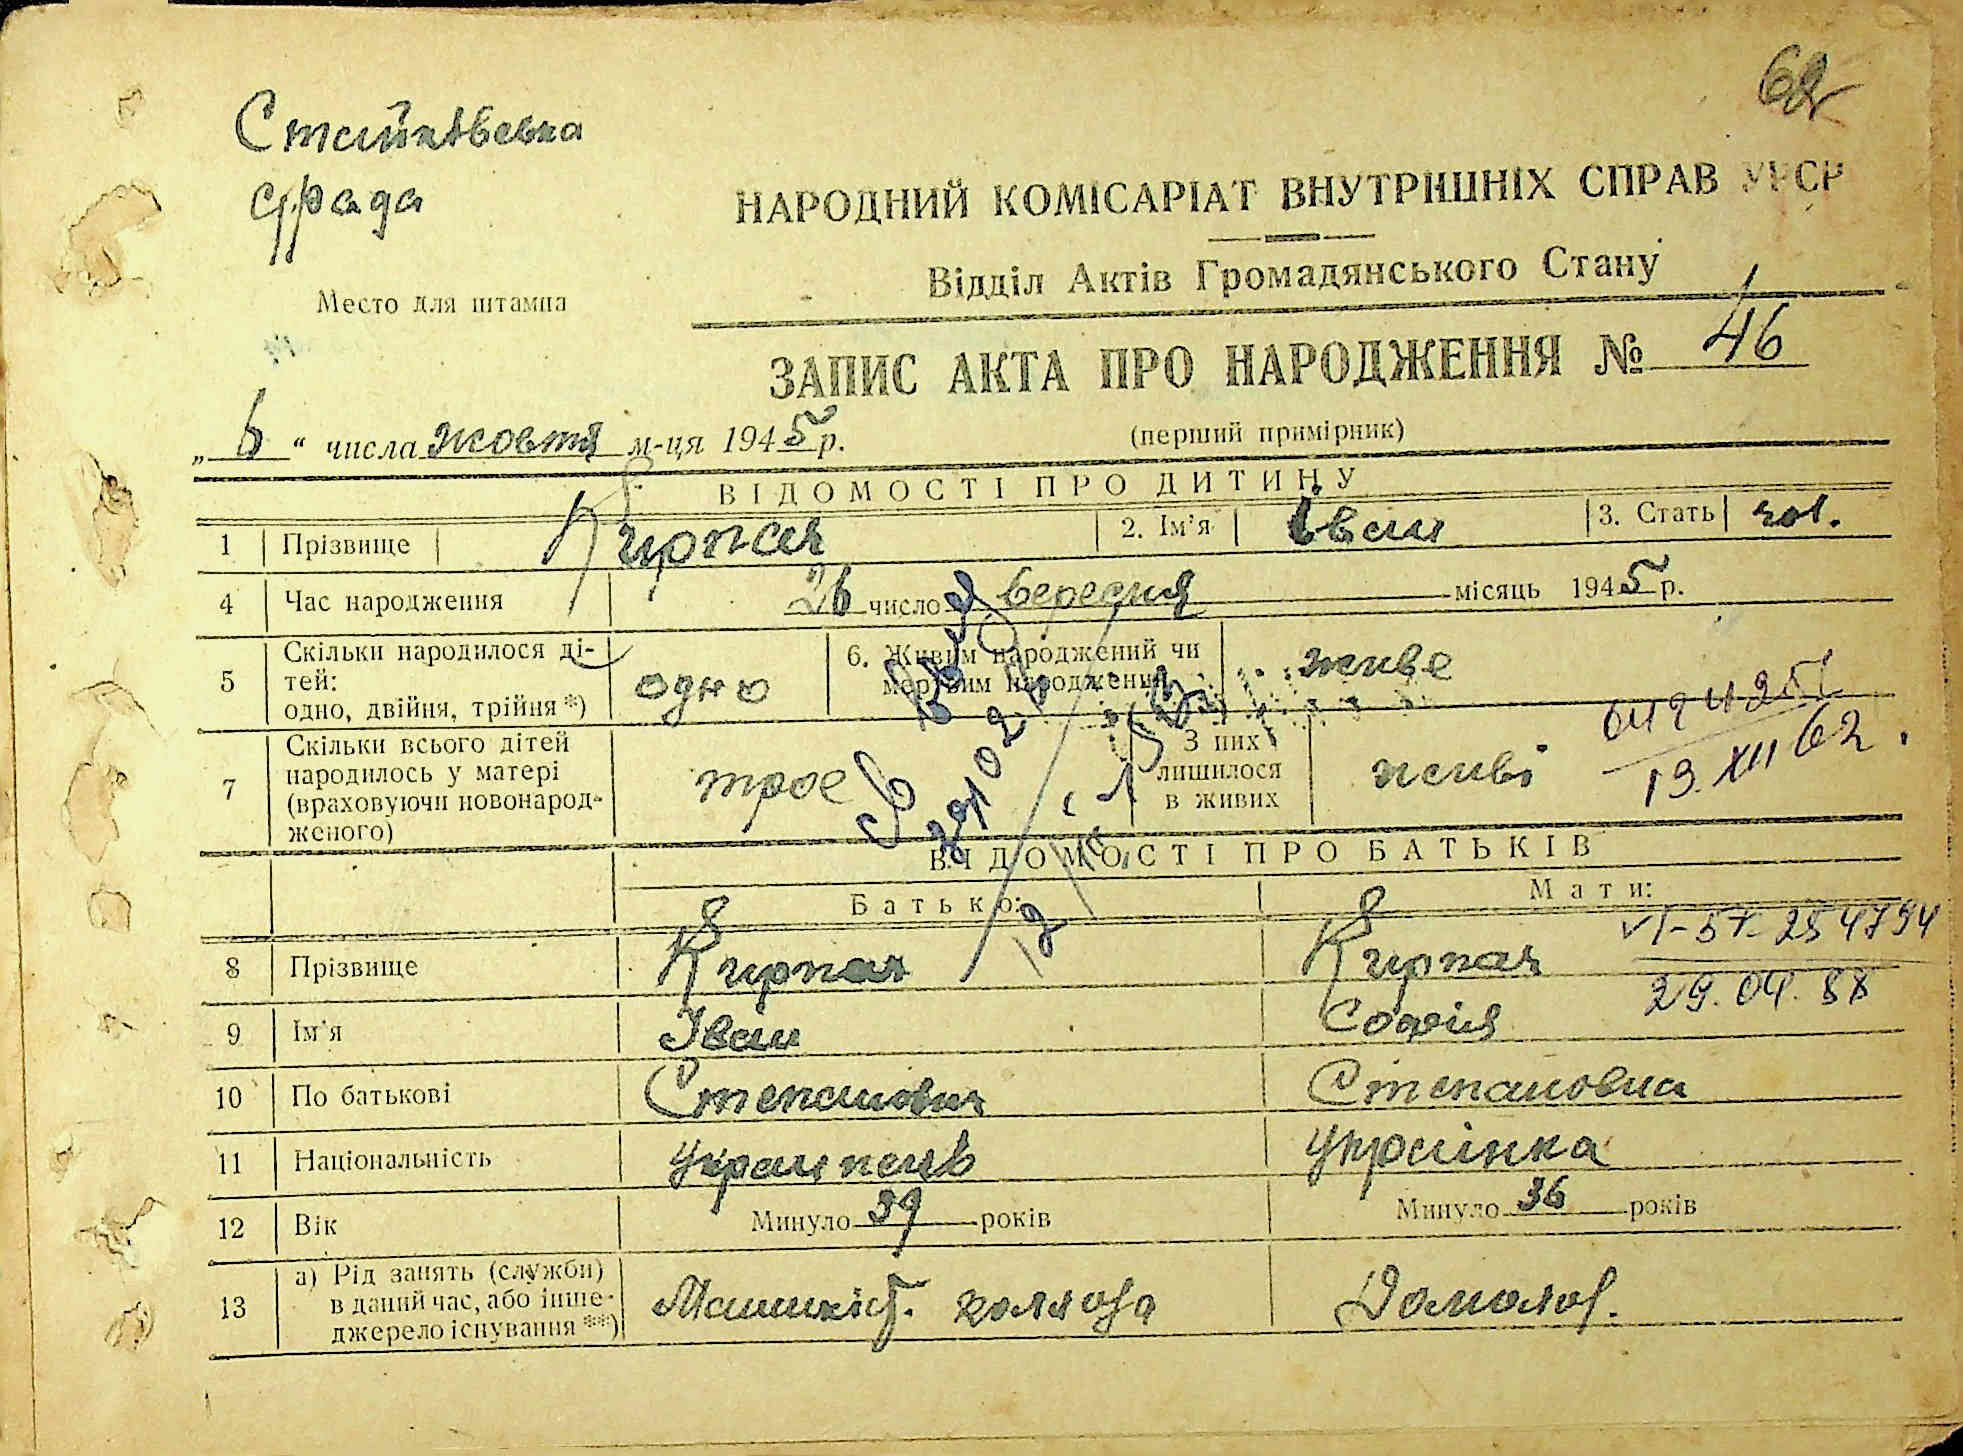 68
Стайківська
с/рада
НАРОДНИЙ КОМІСАРІАТ ВНУТРІШНІХ СПРАВ УРСР
Відділ Актів Громадянського Стану
Место для штампа
ЗАПИС АКТА ПРО НАРОДЖЕННЯ № 46
„ 6 “ числа жовтня м-ця 1945 р.
(перший примірник)
ВІДОМОСТІ ПРО ДИТИНУ
1 Прізвище Кирпач 2. Ім'я Іван 3. Стать чол.
4 Час народження 26 число вересня місяць 1945 р.
5 Скільки народилося ді-
тей:
одно, двійня, трійня *) одно 6. Живим народжений чи
мертвим народжений живе
7 Скільки всього дітей
народилось у матері
(враховуючи новонарод-
женого) троє З них
лишилося
в живих живі
19.XII 62.
ВІДОМОСТІ ПРО БАТЬКІВ
Батько: Мати:
VI-БК 254794
29.04.88
8 Прізвище Кирпач Кирпач
9 Ім'я Іван Софія
10 По батькові Степанович Степановна
11 Національність Українка
12 Вік Минуло 39 років Минуло 36 років
13 а) Рід занять (служби)
в даний час, або інше
джерело існування **) колгоспа Домогосп.